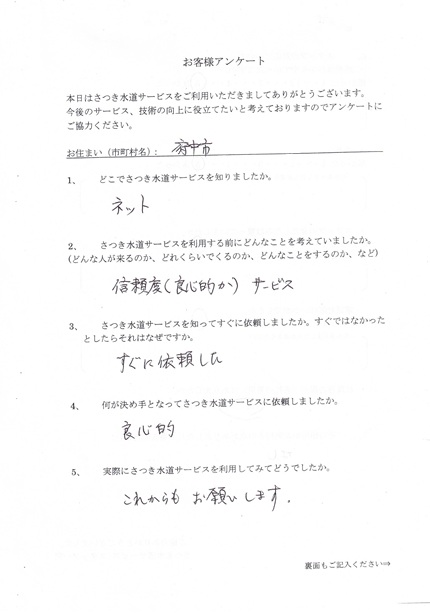 お客様アンケート
本日はさつき水道サービスをご利用いただきましてありがとうございます。
今後のサービス、技術の向上に役立てたいと考えておりますのでアンケートに
ご協力ください。
お住まい（市町村名）： 府中市
1、 どこでさつき水道サービスを知りましたか。
ネット
2、 さつき水道サービスを利用する前にどんなことを考えていましたか。
(どんな人が来るのか、どれくらいでくるのか、どんなことをするのか、など)
信頼度(良心的か) サービス
3、 さつき水道サービスを知ってすぐに依頼しましたか。すぐではなかった
としたらそれはなぜですか。
すぐに依頼した
4、 何が決め手となってさつき水道サービスに依頼しましたか。
良心的
5、 実際にさつき水道サービスを利用してみてどうでしたか。
これからも お願いします.
裏面もご記入ください⇒